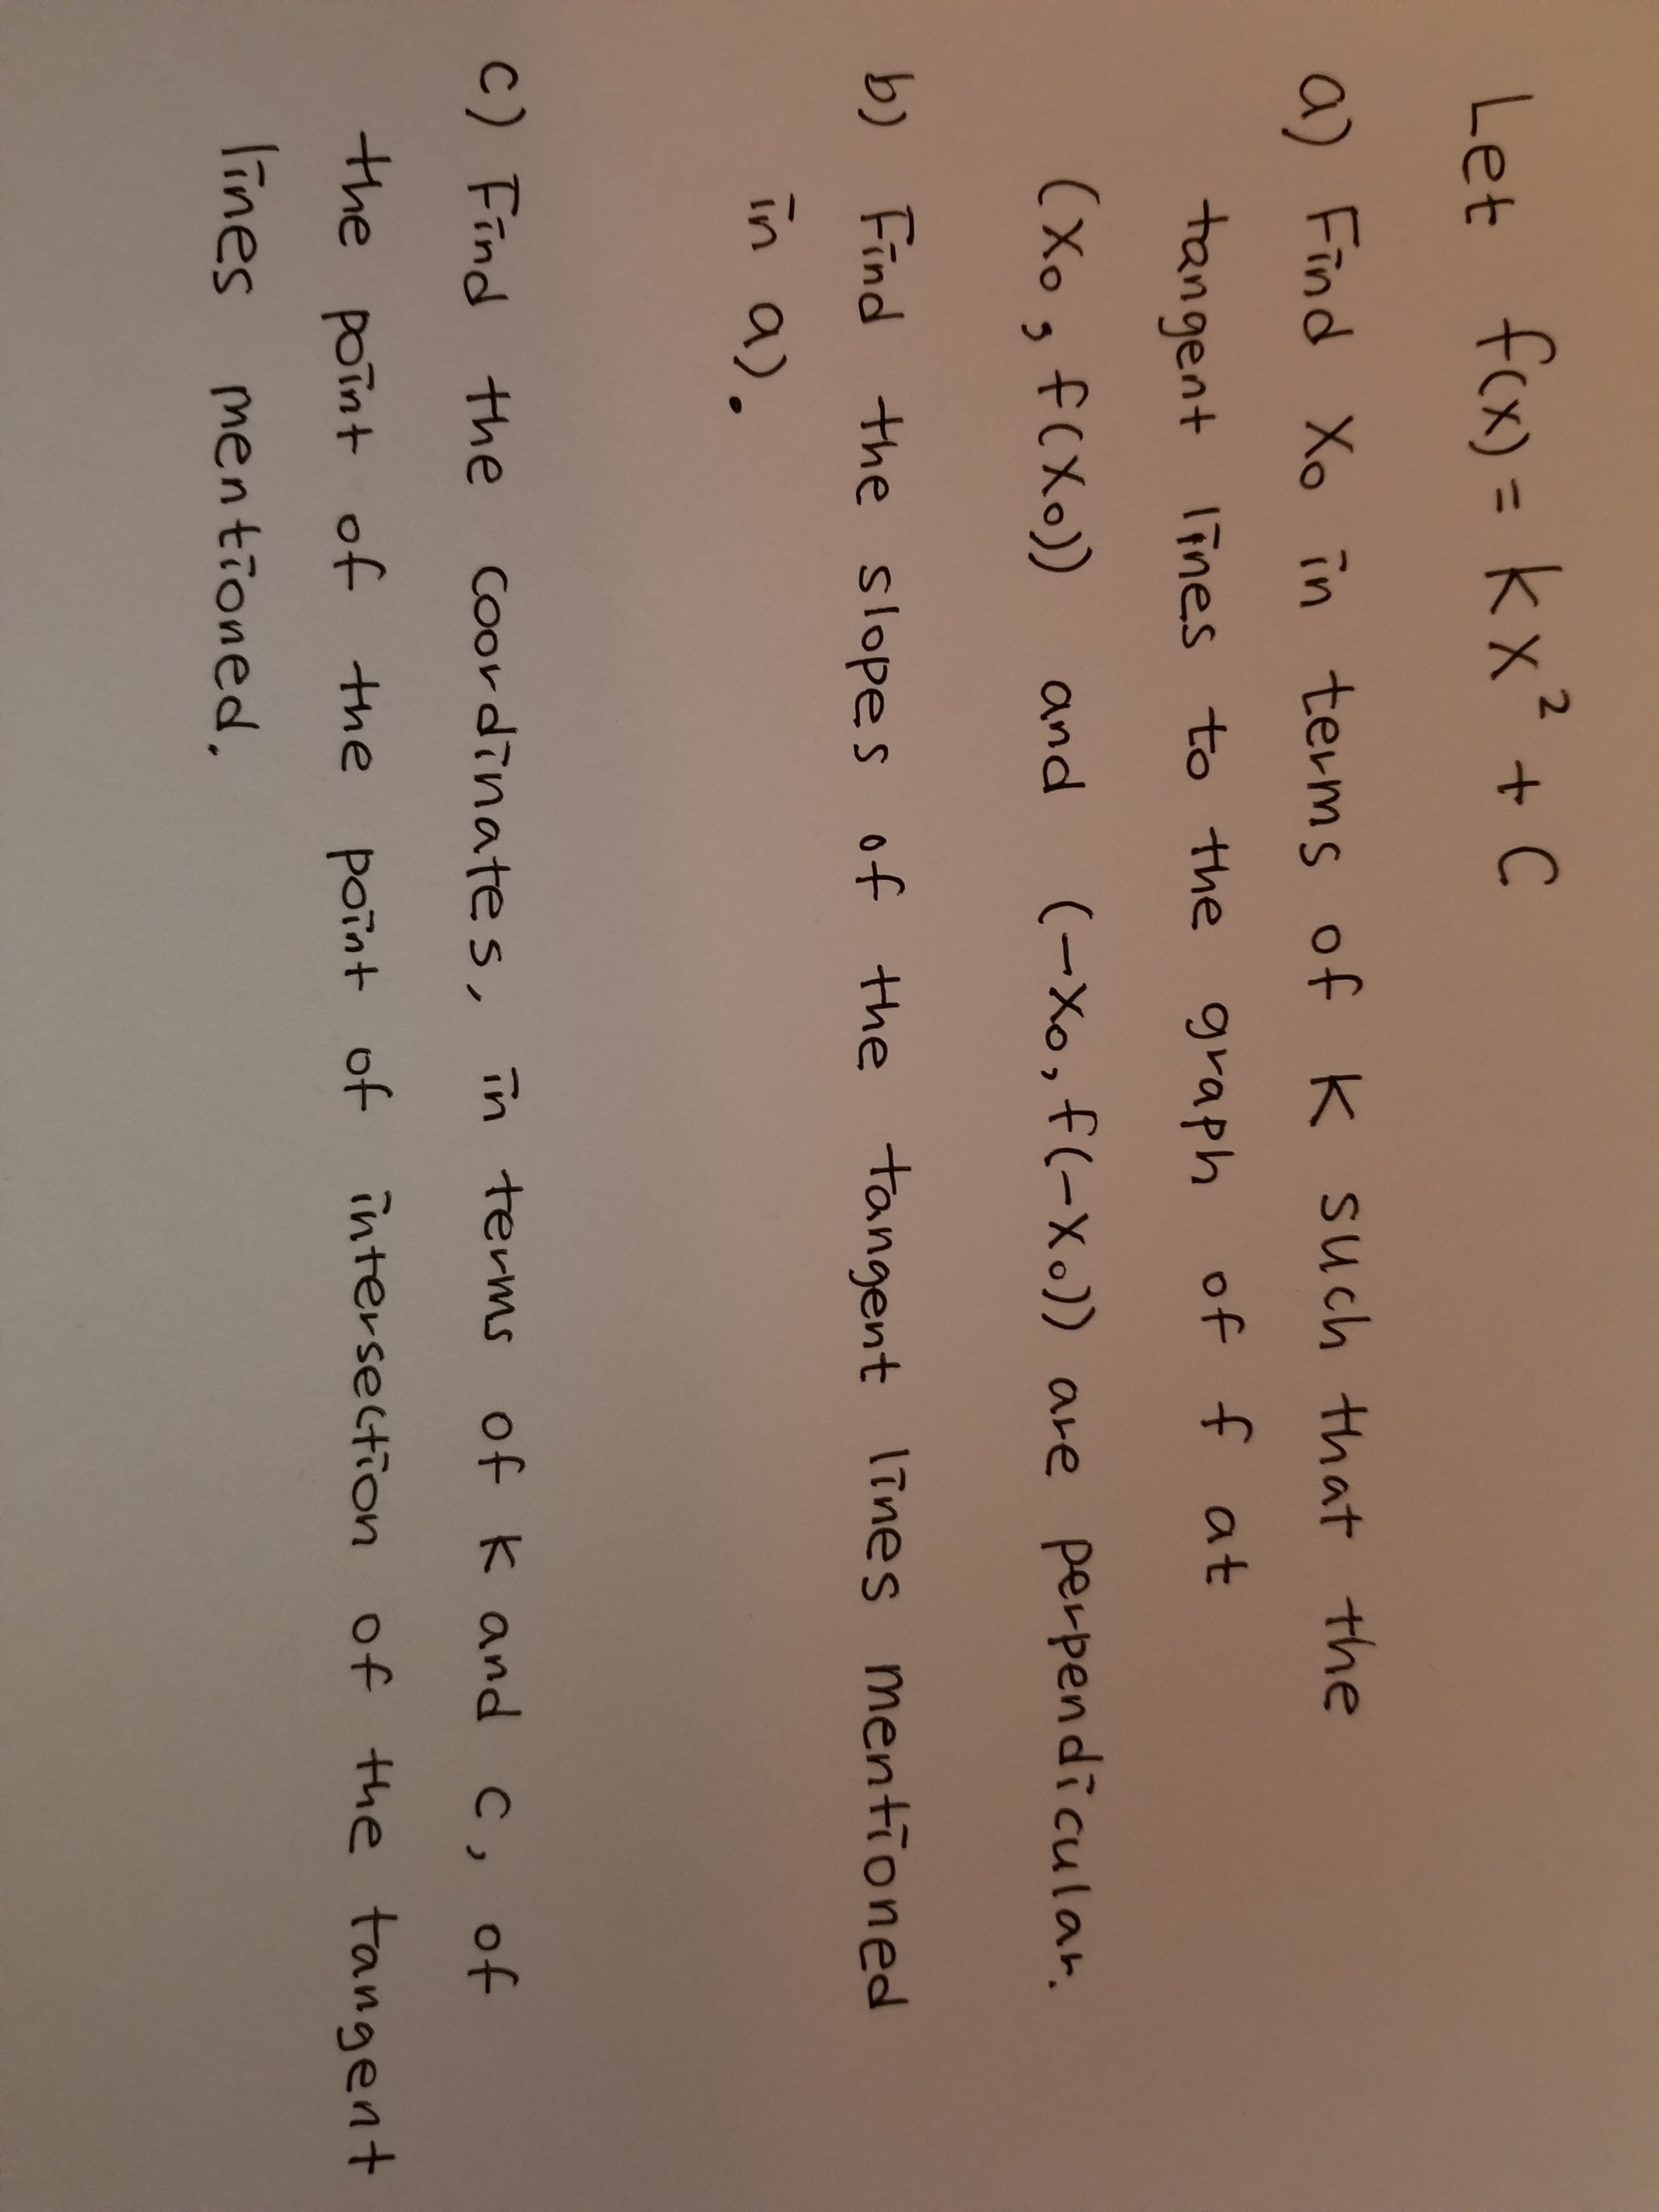 Let f(x) = Kx² + C
a) Find x₀ in terms of K such that the
tangent lines to the graph of f at
(x₀, f(x₀)) and (-x₀, f(-x₀)) are perpendicular.
b) Find the slopes of the tangent lines mentioned
in a).
c) Find the coordinates, in terms of K and C, of
the point of the point of intersection of the tangent
lines mentioned.